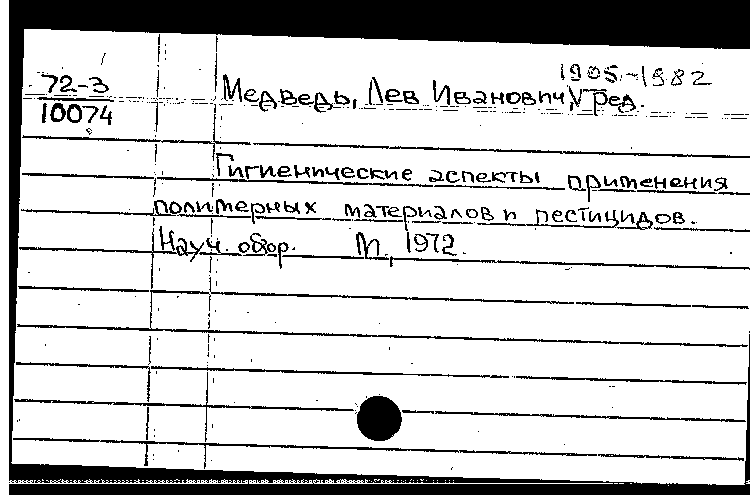 1905-1982
72-3
10074
Медведь, Лев Иванович, ред.
Гигиенические аспекты применения
полимерных материалов и пестицидов.
Науч. обзор. М., 1972.